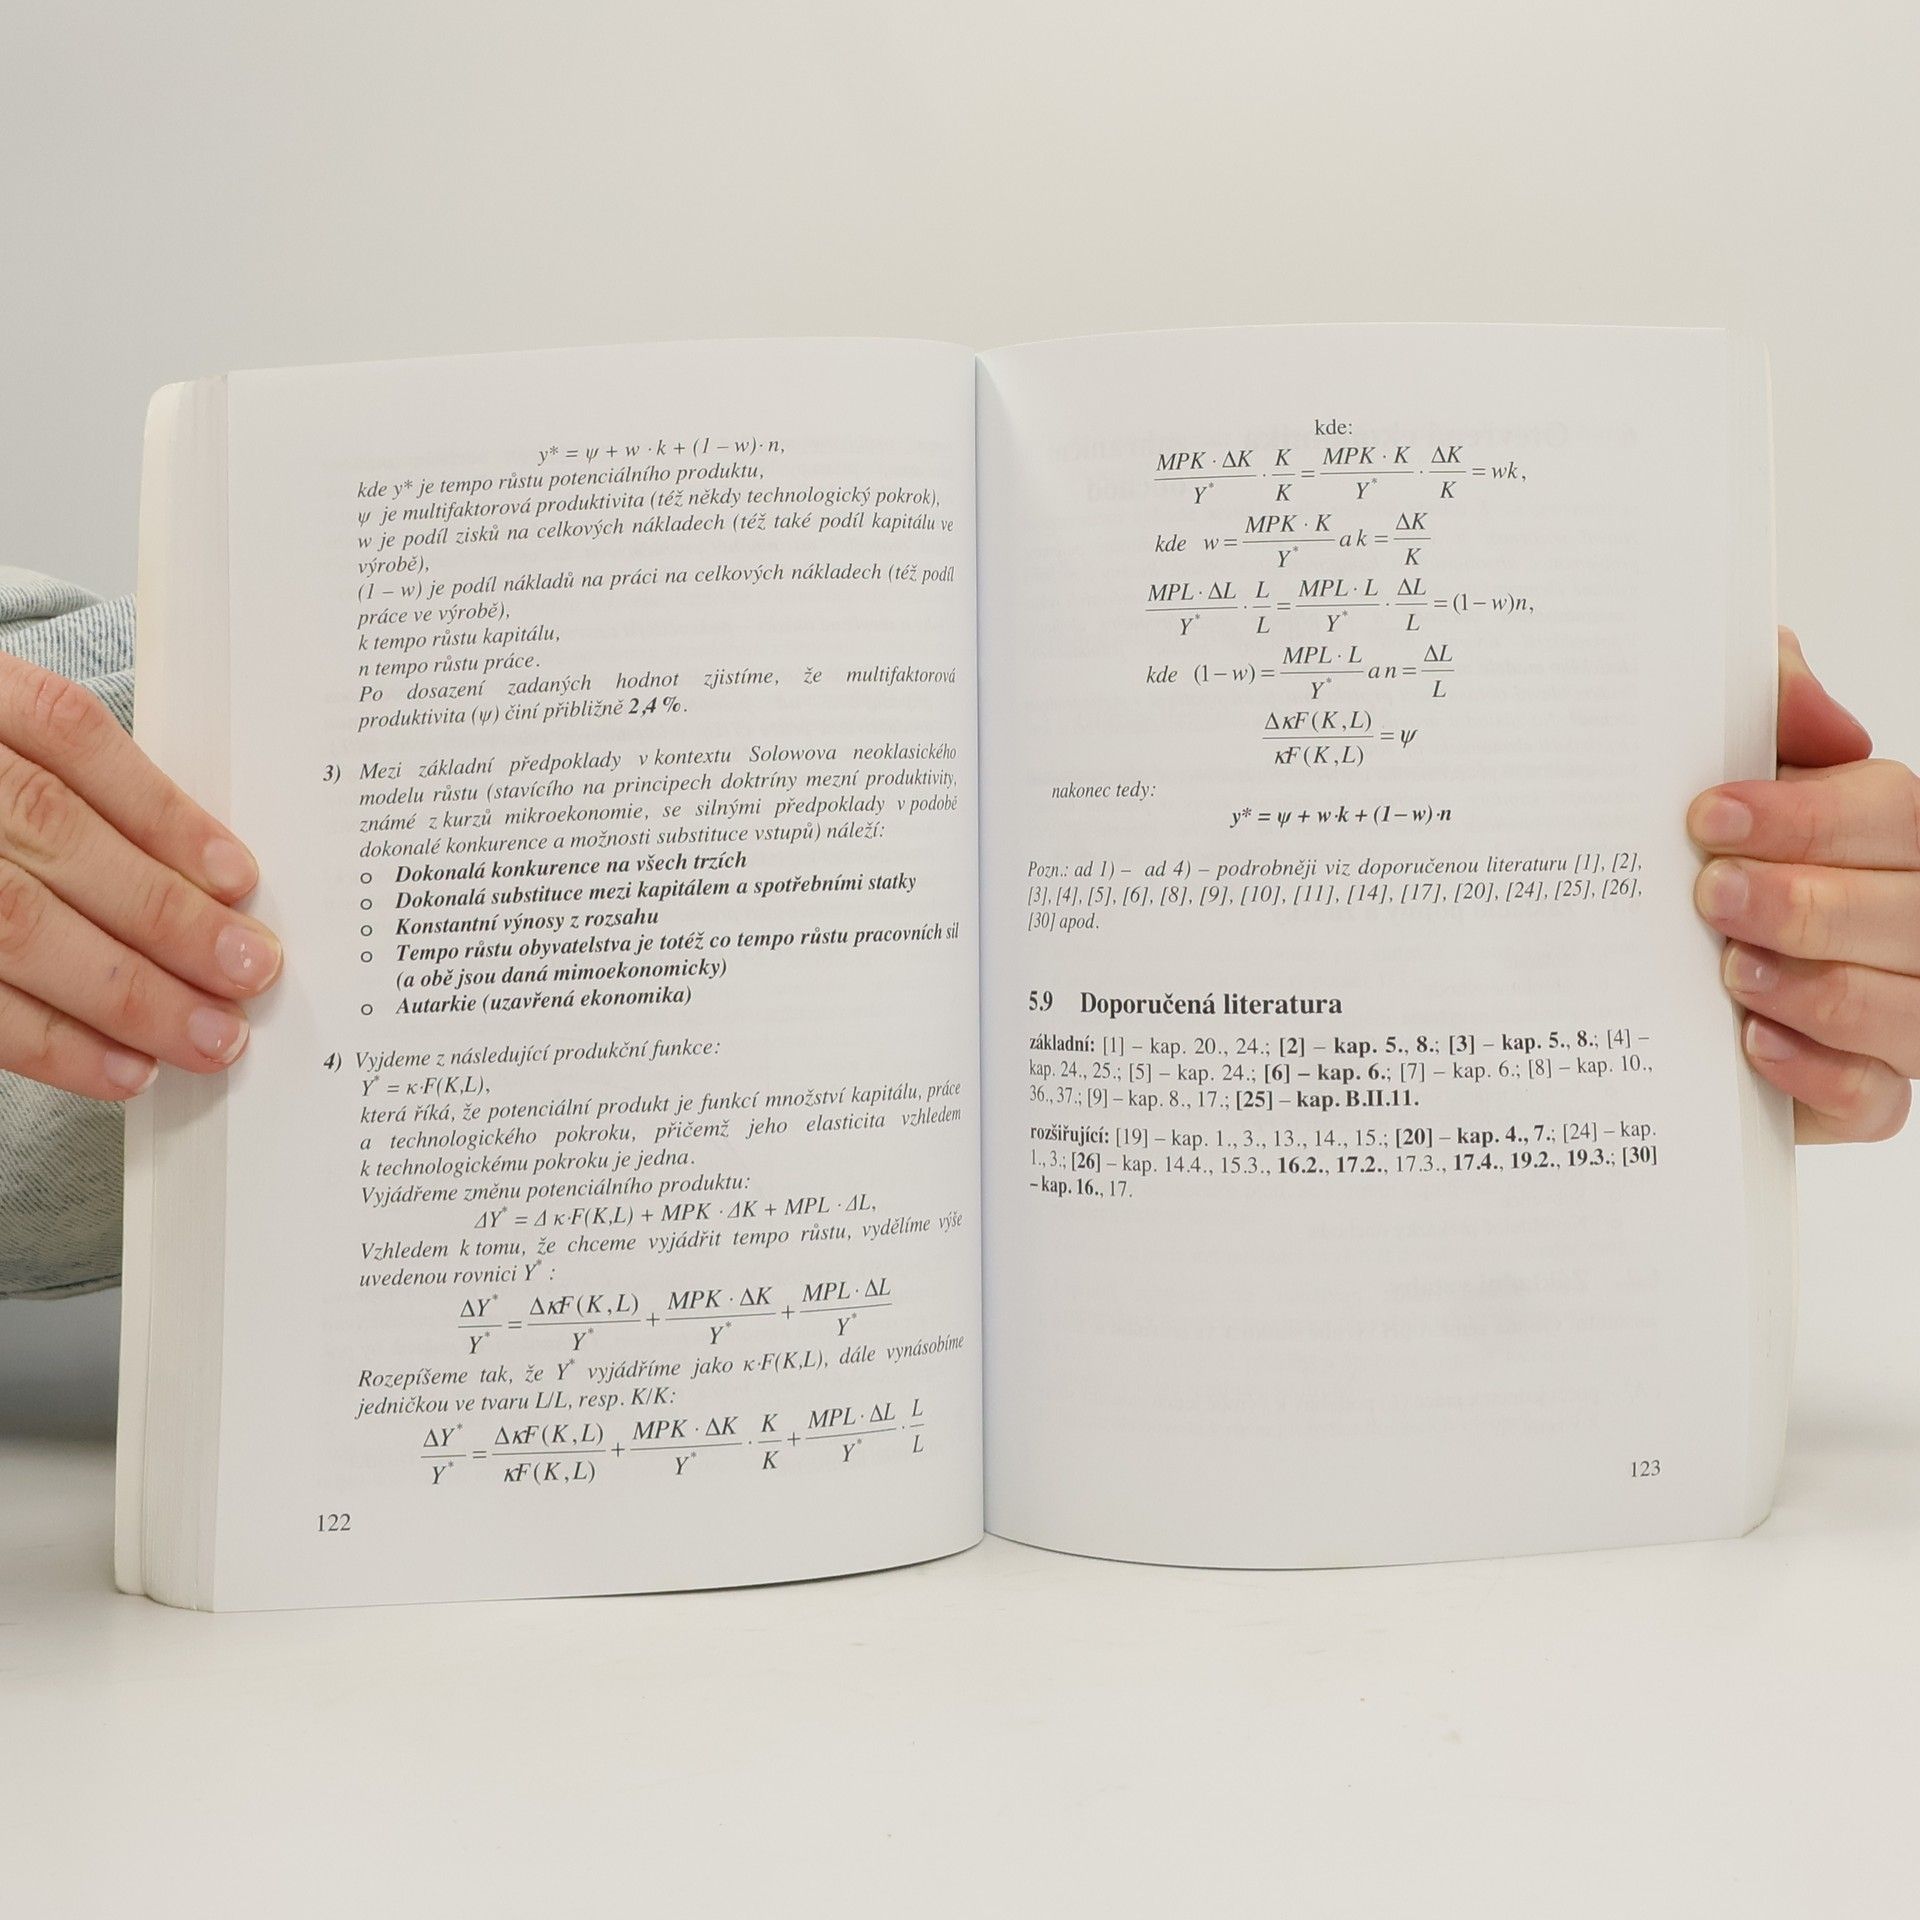 y* = ψ + w · k + (1 – w)· n,
kde y* je tempo růstu potenciálního produktu,
ψ je multifaktorová produktivita (též někdy technologický pokrok),
w je podíl zisků na celkových nákladech (též také podíl kapitálu ve
výrobě),
(1 – w) je podíl nákladů na práci na celkových nákladech (též podíl
práce ve výrobě),
k tempo růstu kapitálu,
n tempo růstu práce.
Po dosazení zadaných hodnot zjistíme, že multifaktorová
produktivita (ψ) činí přibližně 2,4 %.
3) Mezi základní předpoklady v kontextu Solowova neoklasického
modelu růstu (stavícího na principech doktríny mezní produktivity,
známé z kurzů mikroekonomie, se silnými předpoklady v podobě
dokonalé konkurence a možnosti substituce vstupů) náleží:
o Dokonalá konkurence na všech trzích
o Dokonalá substituce mezi kapitálem a spotřebními statky
o Konstantní výnosy z rozsahu
o Tempo růstu obyvatelstva je totéž co tempo růstu pracovních sil
(a obě jsou daná mimoekonomicky)
o Autarkie (uzavřená ekonomika)
4) Vyjdeme z následující produkční funkce:
Y* = κ·F(K,L),
která říká, že potenciální produkt je funkcí množství kapitálu, práce
a technologického pokroku, přičemž jeho elasticita vzhledem
k technologickému pokroku je jedna.
Vyjádřeme změnu potenciálního produktu:
ΔY* = Δ κ·F(K,L) + MPK · ΔK + MPL · ΔL,
Vzhledem k tomu, že chceme vyjádřit tempo růstu, vydělíme výše
uvedenou rovnici Y* :
ΔY*/Y* = ΔκF(K,L)/Y* + MPK · ΔK/Y* + MPL · ΔL/Y*
Rozepíšeme tak, že Y* vyjádříme jako κ·F(K,L), dále vynásobíme
jedničkou ve tvaru L/L, resp. K/K:
ΔY*/Y* = ΔκF(K,L)/κF(K,L) + MPK · ΔK/Y* · K/K + MPL · ΔL/Y* · L/L
122
kde:
MPK · ΔK/Y* · K/K = MPK · K/Y* · ΔK/K = wk,
kde w = MPK · K/Y* a k = ΔK/K
MPL · ΔL/Y* · L/L = MPL · L/Y* · ΔL/L = (1 – w)n,
kde (1 – w) = MPL · L/Y* a n = ΔL/L
ΔκF(K,L)/κF(K,L) = ψ
nakonec tedy:
y* = ψ + w·k + (1 – w)·n
Pozn.: ad 1) – ad 4) – podrobněji viz doporučenou literaturu [1], [2],
[3], [4], [5], [6], [8], [9], [10], [11], [14], [17], [20], [24], [25], [26],
[30] apod.
5.9 Doporučená literatura
základní: [1] – kap. 20., 24.; [2] – kap. 5., 8.; [3] – kap. 5., 8.; [4] –
kap. 24., 25.; [5] – kap. 24.; [6] – kap. 6.; [7] – kap. 6.; [8] – kap. 10.,
36., 37.; [9] – kap. 8., 17.; [25] – kap. B.II.11.
rozšiřující: [19] – kap. 1., 3., 13., 14., 15.; [20] – kap. 4., 7.; [24] – kap.
1., 3.; [26] – kap. 14.4., 15.3., 16.2., 17.2., 17.3., 17.4., 19.2., 19.3.; [30]
– kap. 16., 17.
123